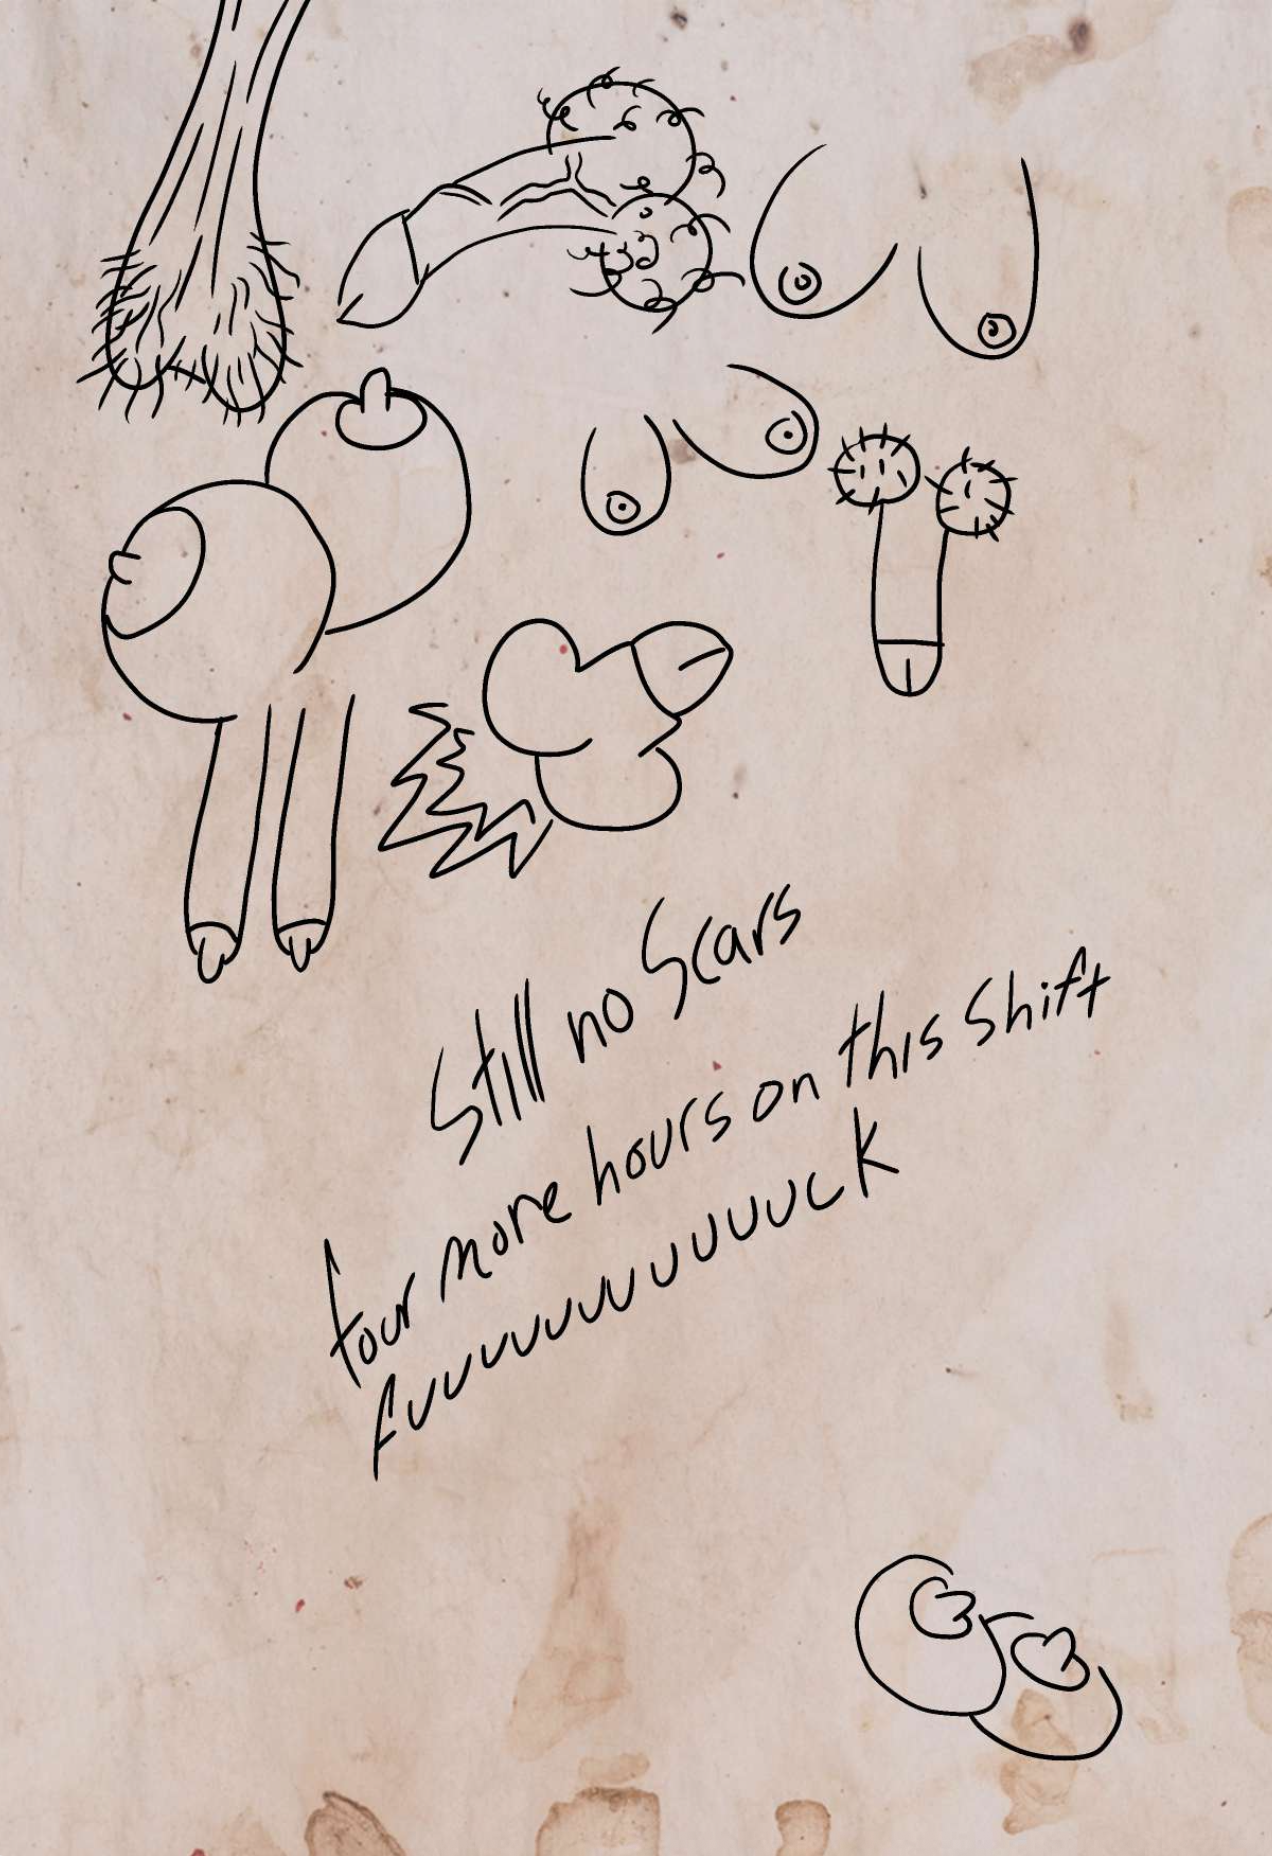 Still no Scars
four more hours on this Shift
fuuuuuuuuuuuck